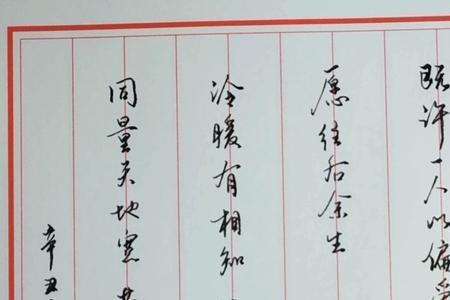 既许一人以偏爱
愿往后余生
冷暖有相知
同量天地宽
辛丑